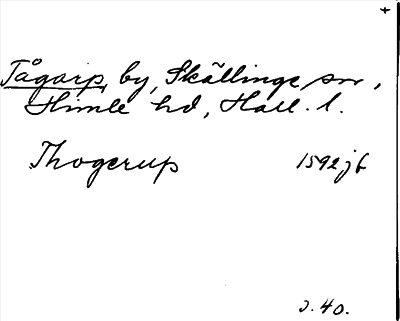 +
Tågarp, by, Skällinge sn,
Himle hd, Hall. l.
Thogerup 1592 jb
J. 40.